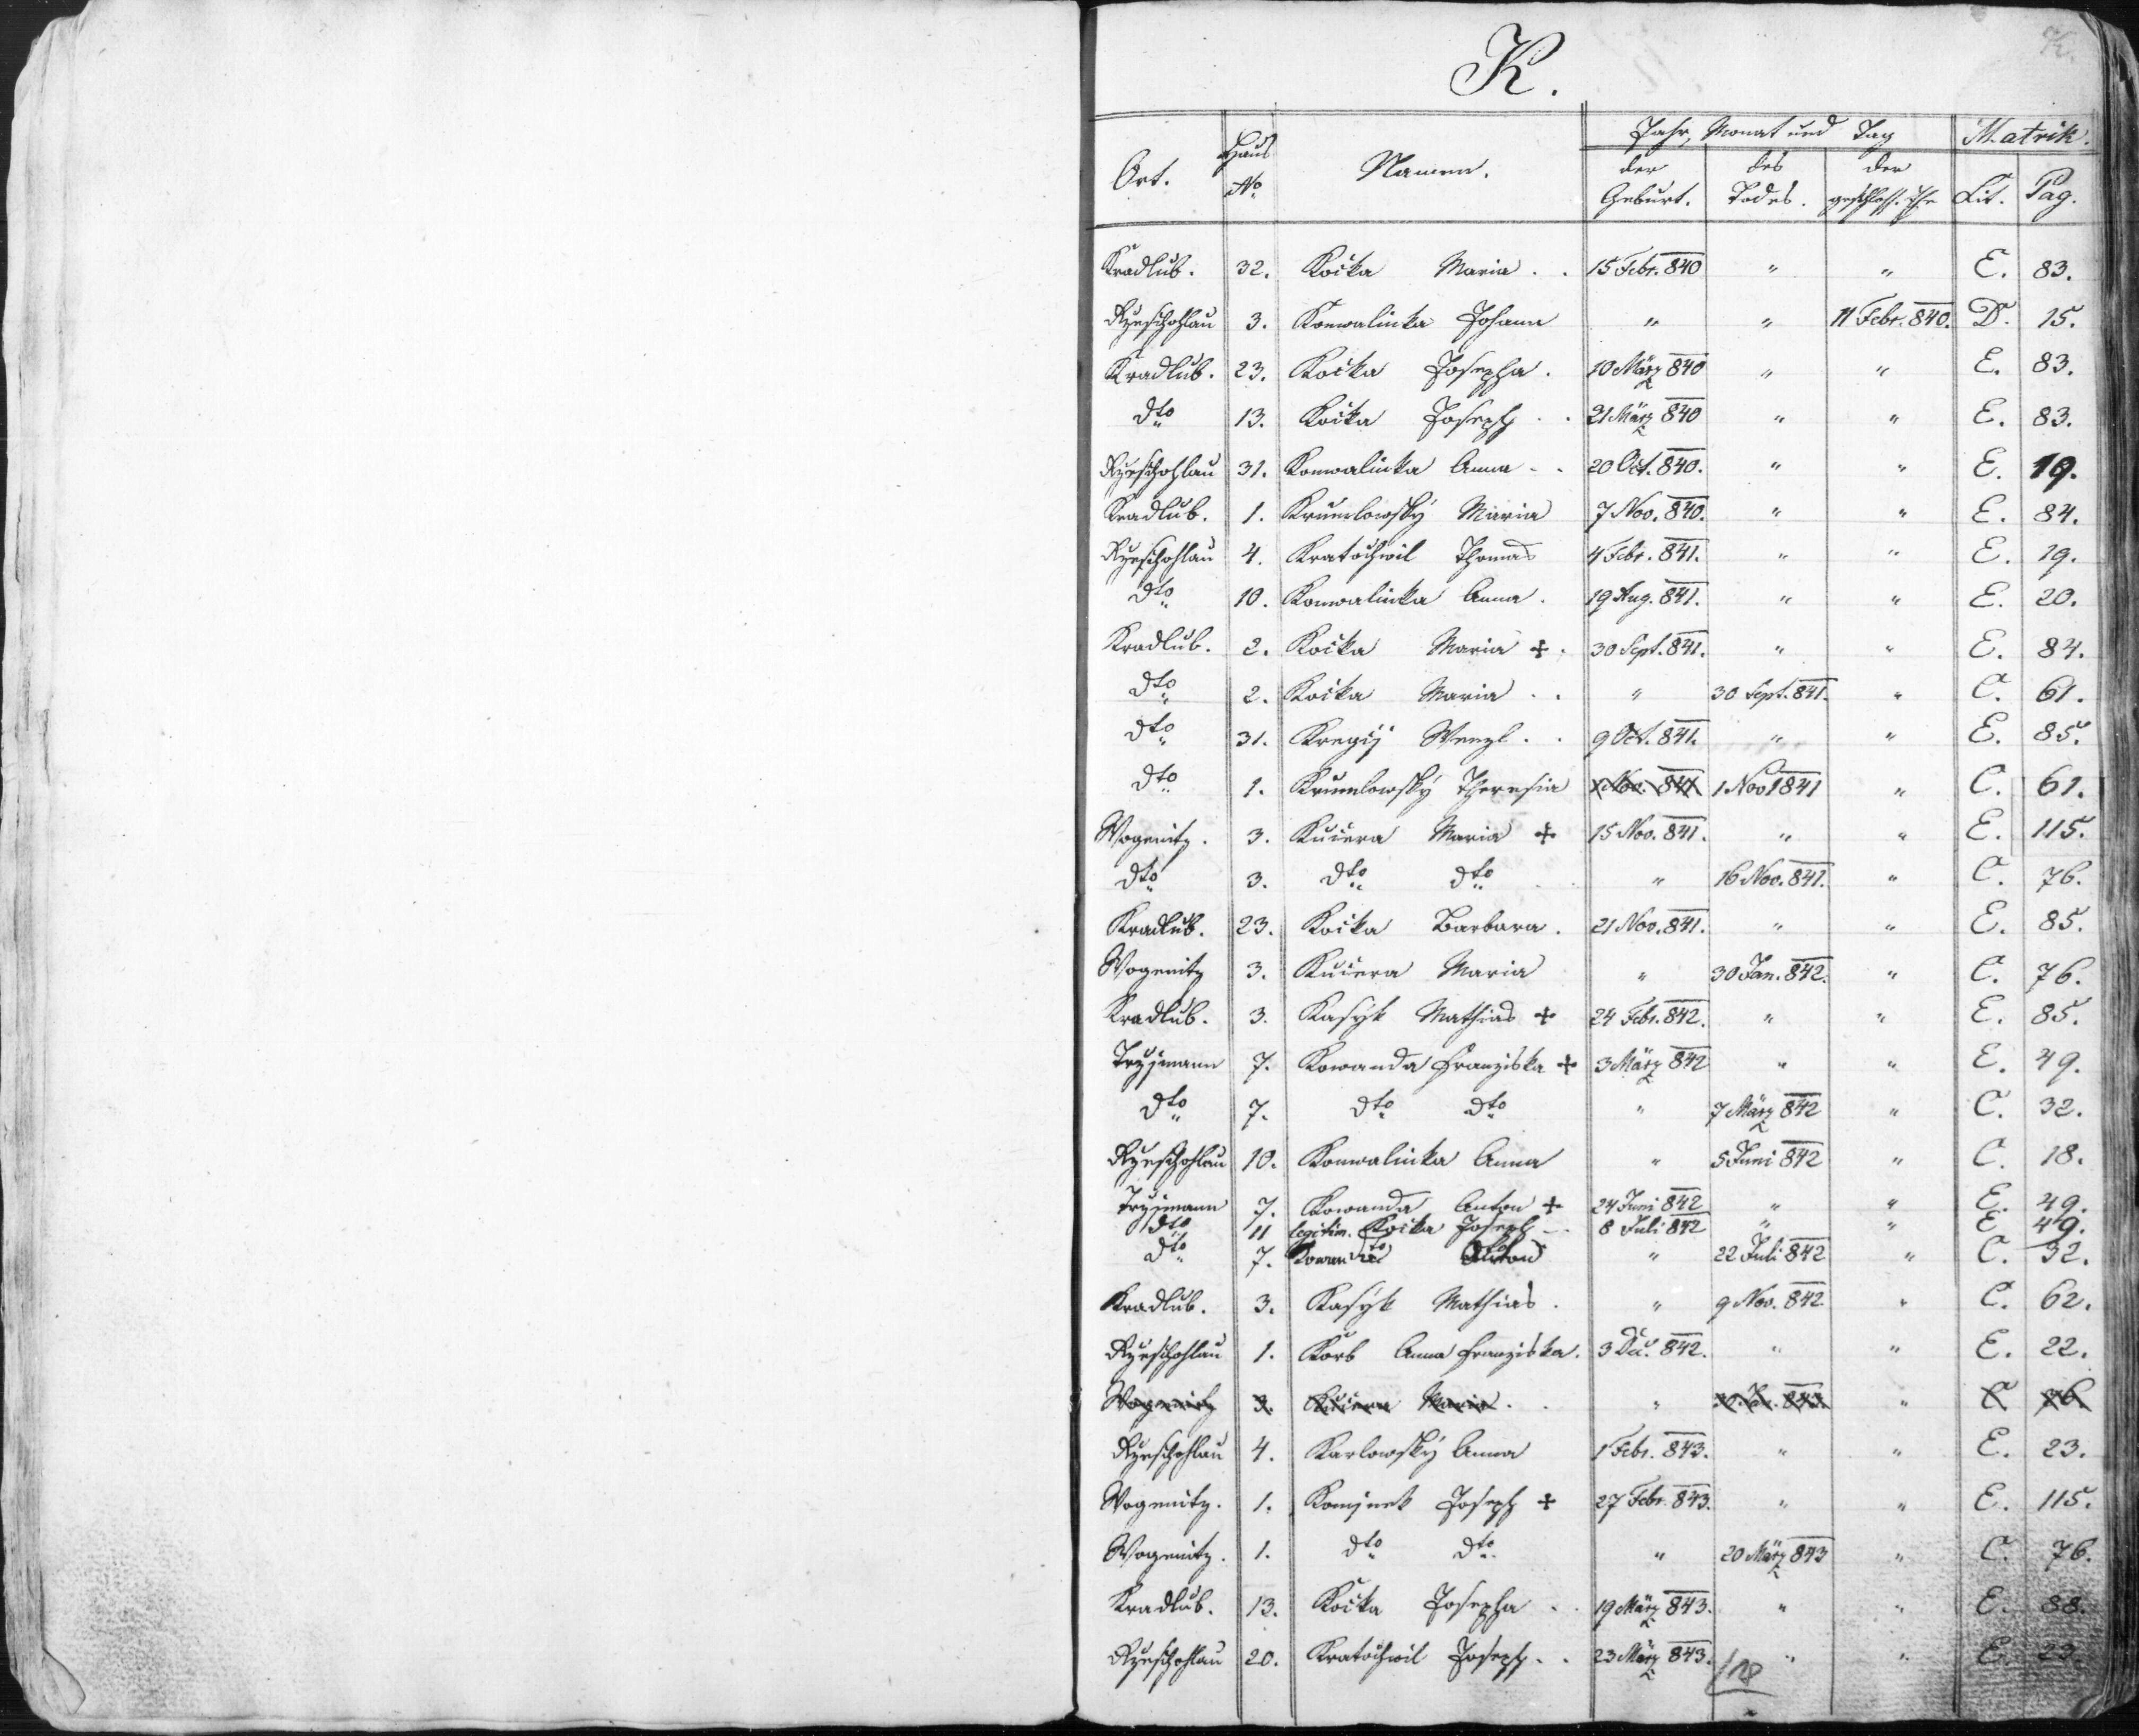 K.
K.
Jahr, Monat und Tag Matrik.
Ort. Haus No Namen. der Geburt. des Todes. der geschloss. Ehe Lit. Pag.
Kradlub. 32. Kočka Maria . . 15 Febr. 840 " " E. 83.
Rzeschohlau 3. Konwalinka Johann " " 11 Febr. 840. D. 15.
Kradlub. 23. Kočka Josepha . 10 März 840 " " E. 83.
dto 13. Kočka Joseph . . 21 März 840 " " E. 83.
Rzeschohlau 31. Konwalinka Anna . . 20 Oct. 840. " " E. 19.
Kradlub. 1. Krumlowský Maria 7 Nov. 840. " " E. 84.
Rzeschohlau 4. Kratochwil Thomas 4 Febr. 841. " " E. 19.
dto 10. Konwalinka Anna . 19 Aug. 841. " " E. 20.
Kradlub. 2. Kočka Maria + . 30 Sept. 841. " " E. 84.
dto 2. Kočka Maria . . " 30 Sept. 841. " C. 61.
dto 31. Kregij Wenzl . . 9 Oct. 841. " " E. 85.
dto 1. Krumlowský Theresia 1 Nov. 841 1 Nov 1841 " C. 61.
Wogenitz . 3. Kučera Maria + 15 Nov. 841. " " E. 115.
dto 3. dto dto " 16 Nov. 841. " C. 76.
Kradlub. 23. Kočka Barbara . 21 Nov. 841. " " E. 85.
Wogenitz 3. Kučera Maria " 30 Jan. 842. " C. 76.
Kradlub. 3. Kasýk Mathias + 24 Febr. 842. " " E. 85.
7. Kowanda Franziska + 3 März 842 " " E. 49.
dto 7. dto dto " 7 März 842 " C. 32.
Rzeschohlau 10. Konwalinka Anna " 5 Juni 842 " C. 18.
7. Kowanda Anton + 24 Juni 842 " " E. 49.
dto 11 legitim. Kočka Joseph 8 Juli 842 " " E. 49.
dto 7. Kowanda Anton " 22 Juli 842 " C. 32.
Kradlub. 3. Kasýk Mathias . " 9 Nov. 842 " C. 62.
Rzeschohlau 1. Korb Anna Franziska. 3 Dec. 842. " " E. 22.
Wogenitz 3. Kučera Maria . . " 30 Jan. 843. " C 76.
Rzeschohlau 4. Karlowský Anna 1 Febr. 843. " " E. 23.
Wogenitz. 1. Komjnek Joseph + 27 Febr. 843. " " E. 115.
Wogenitz. 1. dto dto " 20 März 843 " C. 76.
Kradlub. 13. Kočka Josepha . . 19 März 843. " " E. 88.
Rzeschohlau 20. Kratochwil Joseph . . 23 März 843. " " E. 23.